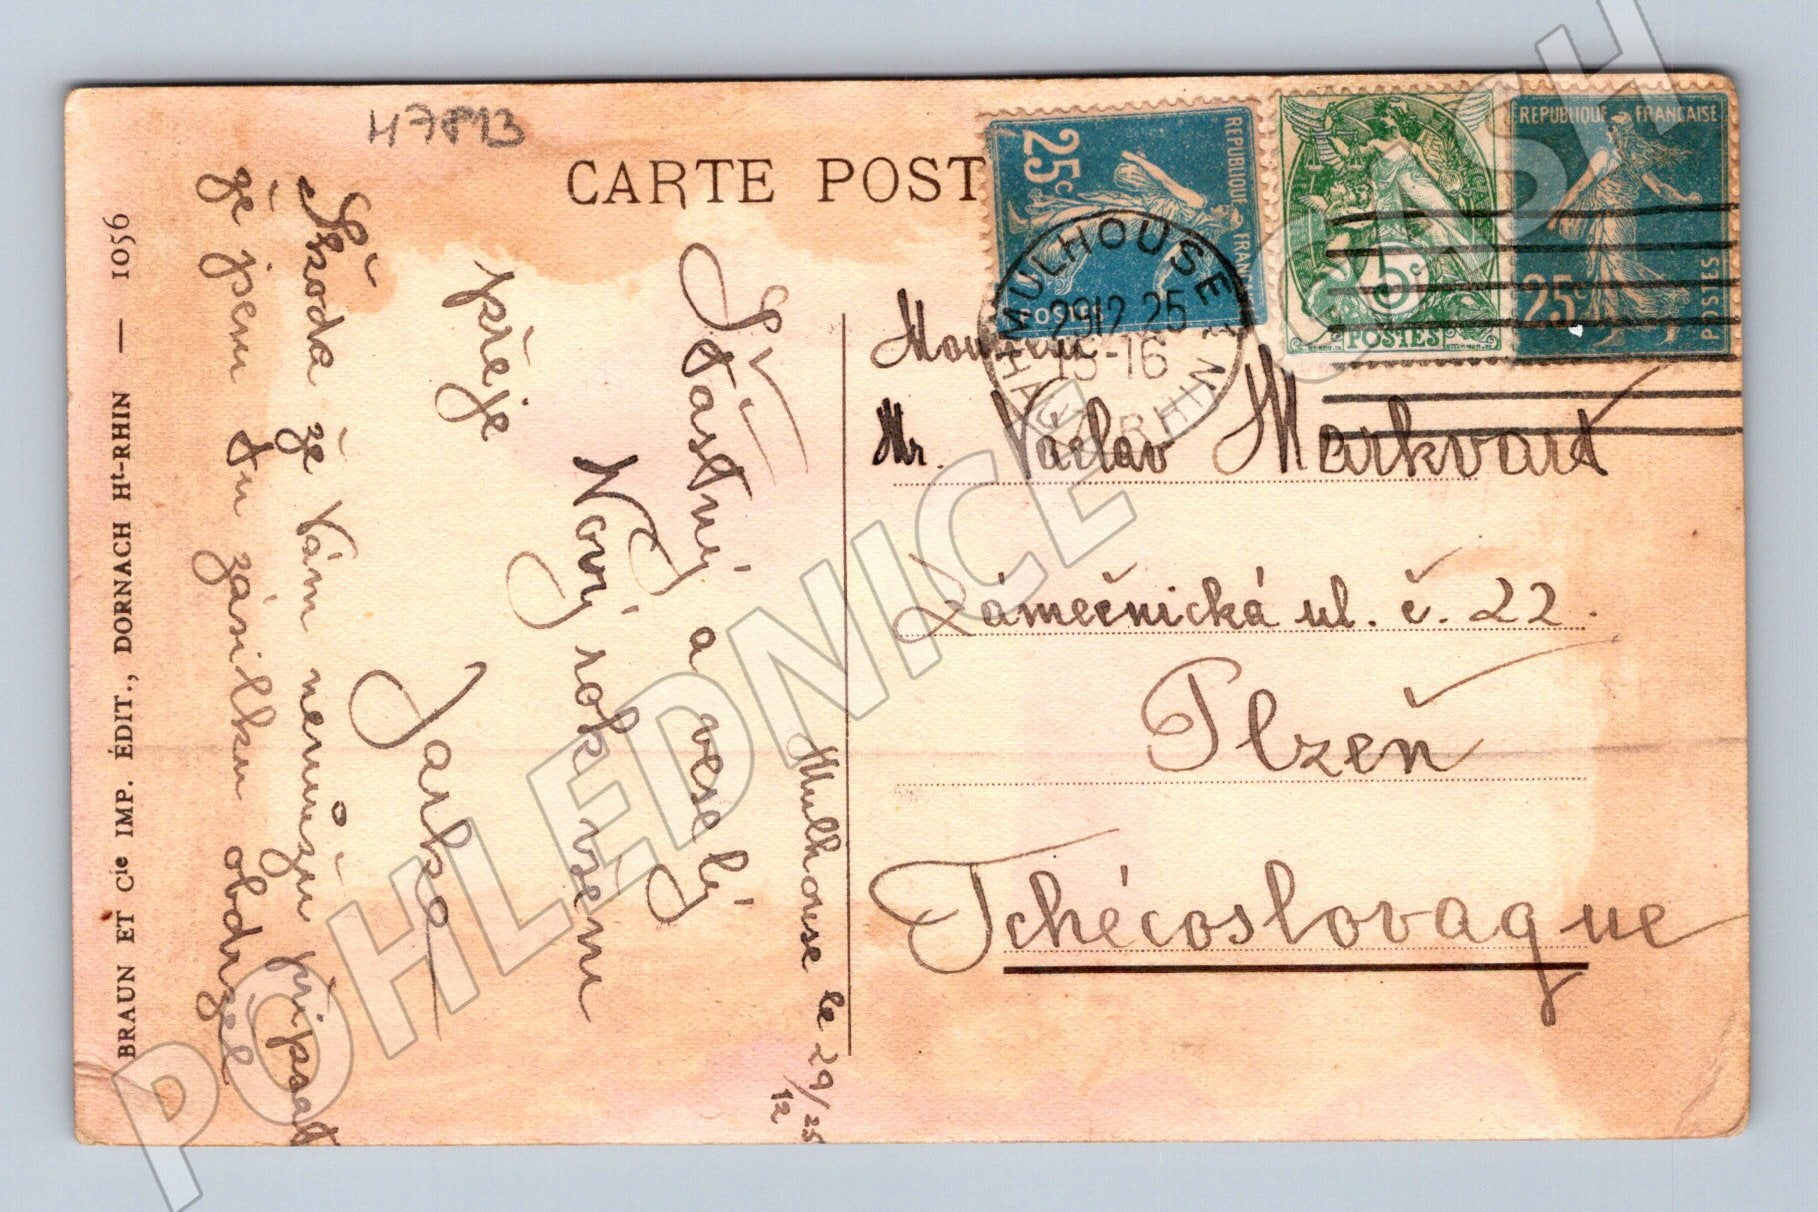 47813
CARTE POST
BRAUN ET Cie IMP. ÉDIT., DORNACH Ht-RHIN — 1056
25c
REPUBLIQUE FRANÇAISE
POSTES
5c
POSTES
REPUBLIQUE FRANÇAISE
25c
POSTES
MULHOUSE
29 12 25
15-16
HAUT-RHIN
Mulhouse le 29/12 25
Šťastný a veselý
Nový rok všem
přeje
Jarka
Škoda že Vám nemůžu připsat
že jsem tu zásilku obdržel
Monsieur
Mr. Václav Markvart
Zámečnická ul. č. 22.
Plzeň
Tchécoslovaque
POHLEDNICE